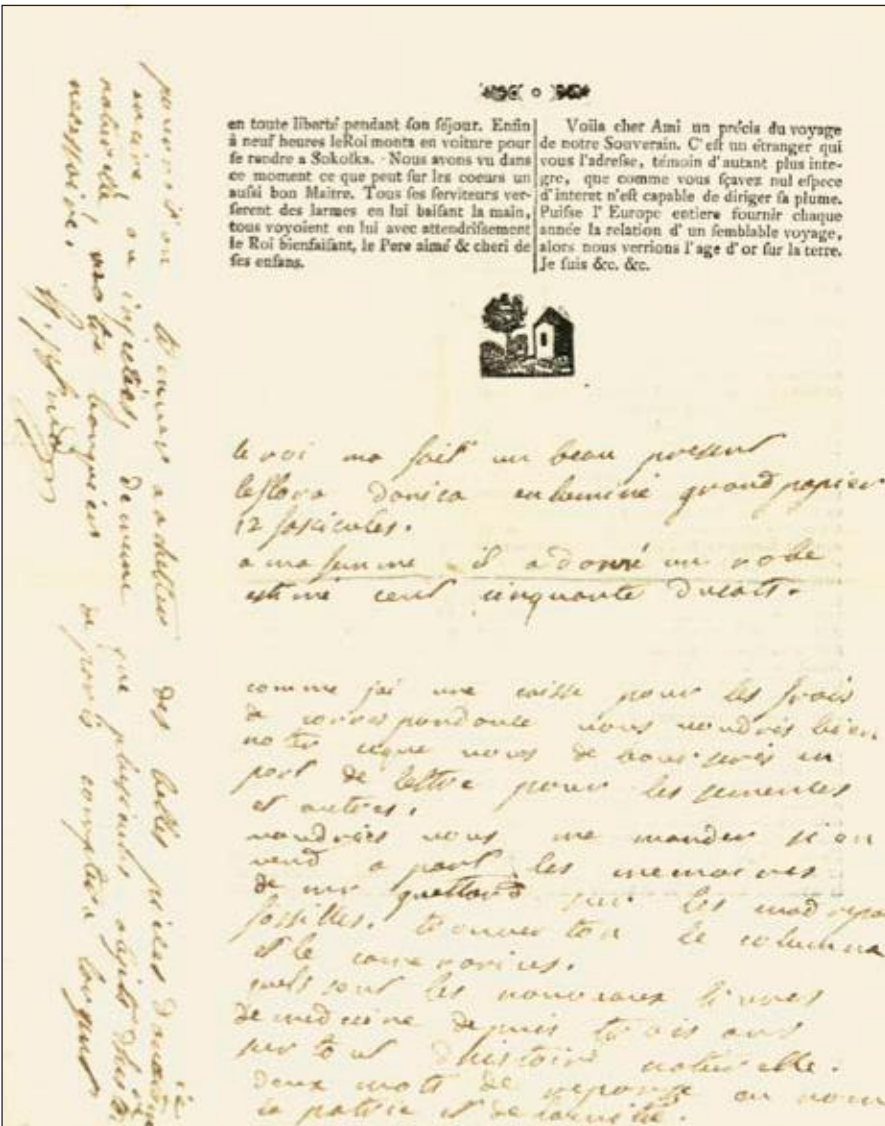 en toute liberté pendant ſon ſéjour. Enfin
à neuf heures leRoi monta en voiture pour
ſe rendre a Sokolka. Nous avons vu dans
ce moment ce que peut ſur les coeurs un
auſſi bon Maitre. Tous ſes ſerviteurs ver-
ſerent des larmes en lui baiſant la main,
tous voyoient en lui avec attendriſſement
le Roi bienfaiſant, le Pere aimé & cheri de
ſes enfans.
Voila cher Ami un précis du voyage
de notre Souverain. C'eſt un étranger qui
vous l'adreſſe, témoin d'autant plus inte-
gre, que comme vous ſçavez nul eſpece
d'interet n'eſt capable de diriger ſa plume.
Puiſſe l'Europe entiere fournir chaque
année la relation d'un ſemblable voyage,
alors nous verrions l'age d'or ſur la terre.
Je ſuis &c. &c.
le roi ma fait un beau present
leflora danica enluminé grand papier
12 fascicules.
a ma femme il a donné un robe
estimé cent cinquante ducats.
comme jai une caisse pour les frais
de correspondance vous voudrés bien
noter ceque vous de boursерés en
port de lettre pour les semences
et autres.
voudriés vous me mander si on
vend a part les memoires
de mr guettard sur les madrepo
fossilles. trouve ton le columna
et le
quels sont les nouveaux livres
de medecine depuis trois ans
sur tout dhistoire naturelle.
deux mots de reponse au nom
la patrie et de
pouroit on trouver a achetter des belles pieces
ou injectées, de meme que plusieurs objets dhistoire
naturelle, notre banquier de Paris comptera largent
necessaire.